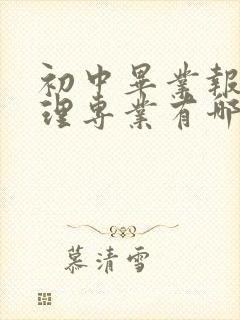 初中畢業報
理專業有哪
慕清雪